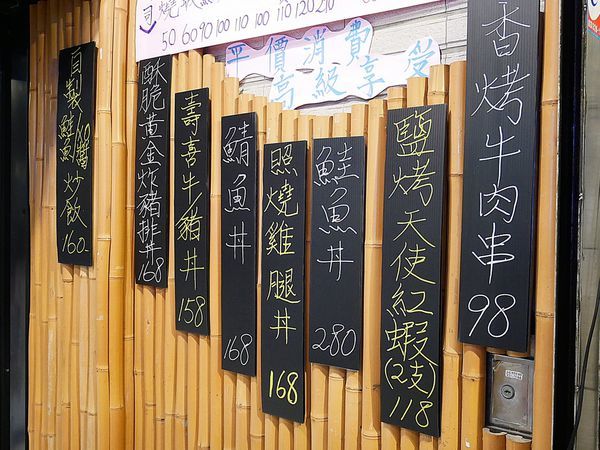 司
燒
50 60 90 100 110 100 110 120 210
平價消費
高級享受
自製鮭魚醬炒飯 160
酥脆黃金炸豬排丼 168
壽喜牛/豬丼 158
鯖魚丼 168
照燒雞腿丼 168
鮭魚丼 280
鹽烤天使紅蝦(2支) 118
香烤牛肉串 98